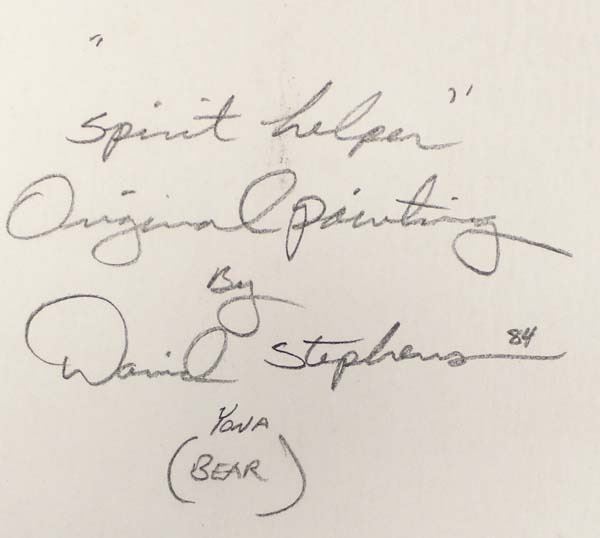 "spirit helper"
Original painting
By
David Stephens 84
YONA
(BEAR)